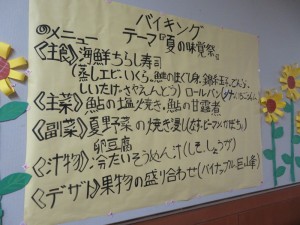 バイキング
◎メニュー テーマ『夏の味覚祭』
《主食》海鮮ちらし寿司
(蒸しエビ、いくら、鮪のほぐし身、錦糸玉子、でんぶ、
しいたけ、きやえんどう) ロールパン
《主菜》鮎の塩焼き・鮎の甘露煮
《副菜》夏野菜の焼き浸し(なす・ピーマン・かぼちゃ)
卵豆腐
《汁物》冷たいそうめん汁(しそ しょうが)
《デザート》果物の盛り合わせ(パイナップル、巨山峰)